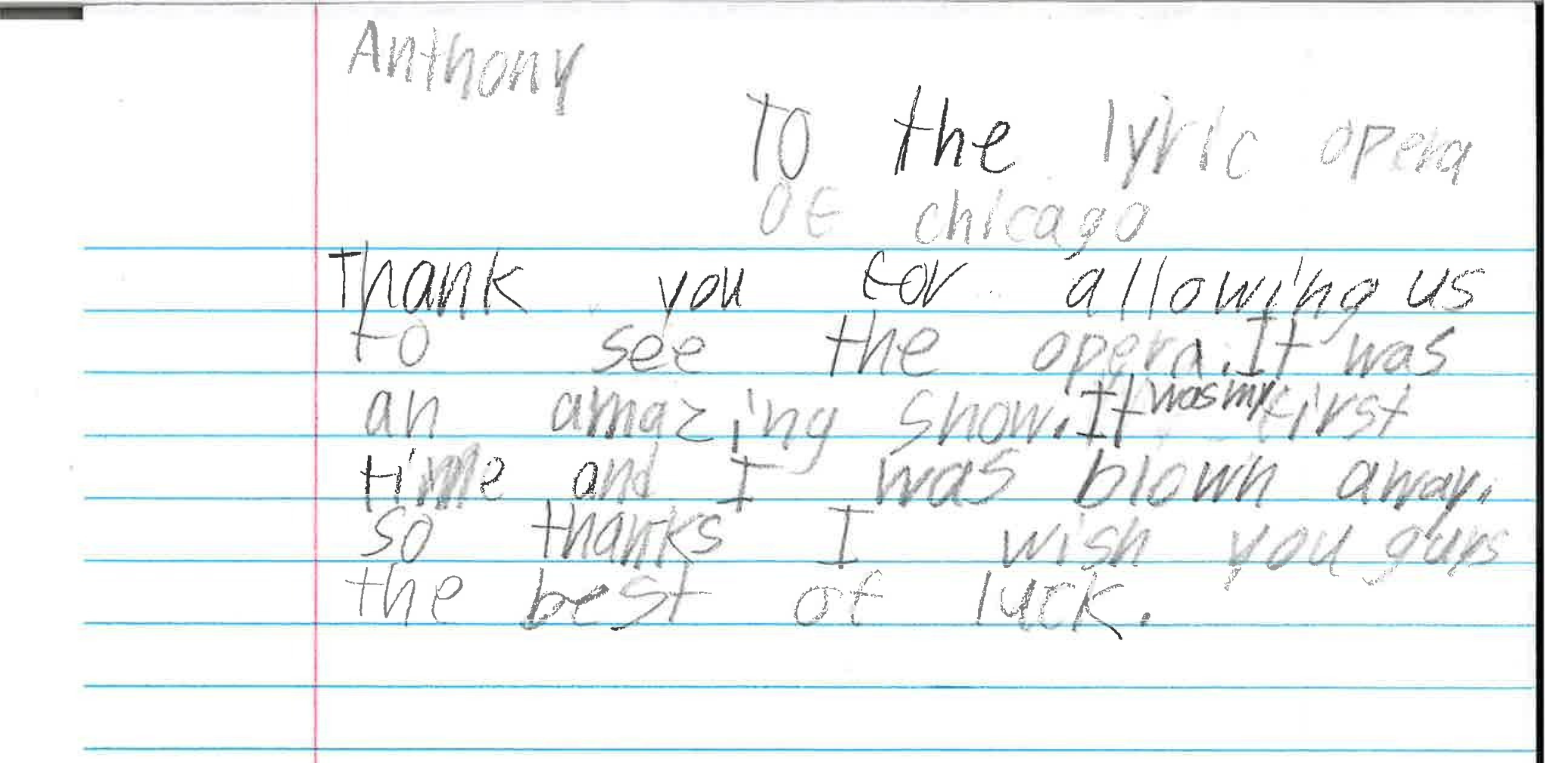 Anthony
To the lyric opera
of chicago
Thank you for allowing us
to see the opera. It was
an amazing show. It was my first
time and I was blown away.
so thanks I wish you guys
the best of luck.